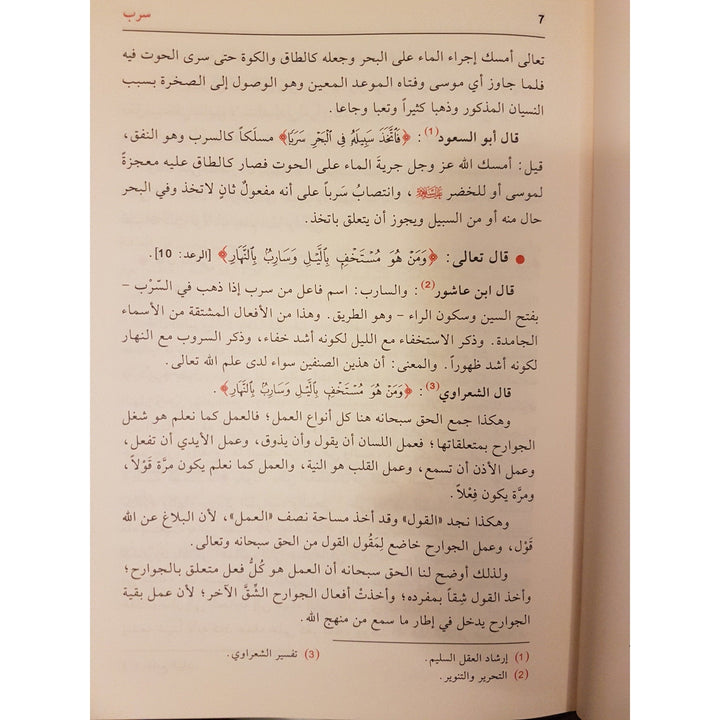 7 سرب
تعالى أمسك إجراء الماء على البحر وجعله كالطاق والكوة حتى سرى الحوت فيه
فلما جاوز أي موسى وفتاه الموعد المعين وهو الوصول إلى الصخرة بسبب
النسيان المذكور وذهبا كثيراً وتعبا وجاعا.
قال أبو السعود(1): ﴿فَاتَّخَذَ سَبِيلَهُ فِي الْبَحْرِ سَرَبًا﴾ مسلَكاً كالسرب وهو النفق،
قيل: أمسك الله عز وجل جريةَ الماء على الحوت فصار كالطاق عليه معجزةً
لموسى أو للخضر ﷺ، وانتصابُ سَرباً على أنه مفعولٌ ثانٍ لاتخذ وفي البحر
حال منه أو من السبيل ويجوز أن يتعلق باتخذ.
● قال تعالى: ﴿وَمَنْ هُوَ مُسْتَخْفٍ بِاللَّيْلِ وَسَارِبٌ بِالنَّهَارِ﴾ [الرعد: 10].
قال ابن عاشور(2): والسارب: اسم فاعل من سرب إذا ذهب في السّرْب –
بفتح السين وسكون الراء – وهو الطريق. وهذا من الأفعال المشتقة من الأسماء
الجامدة. وذكر الاستخفاء مع الليل لكونه أشد خفاء، وذكر السروب مع النهار
لكونه أشد ظهوراً. والمعنى: أن هذين الصنفين سواء لدى علم الله تعالى.
قال الشعراوي(3): ﴿وَمَنْ هُوَ مُسْتَخْفٍ بِاللَّيْلِ وَسَارِبٌ بِالنَّهَارِ﴾.
وهكذا جمع الحق سبحانه هنا كل أنواع العمل؛ فالعمل كما نعلم هو شغل
الجوارح بمتعلقاتها؛ فعمل اللسان أن يقول وأن يذوق، وعمل الأيدي أن تفعل،
وعمل الأذن أن تسمع، وعمل القلب هو النية، والعمل كما نعلم يكون مرَّة قَوْلاً،
ومرَّة يكون فِعْلاً.
وهكذا نجد «القول» وقد أخذ مساحة نصف «العمل»، لأن البلاغ عن الله
قَوْل، وعمل الجوارح خاضع لِمَقُول القول من الحق سبحانه وتعالى.
ولذلك أوضح لنا الحق سبحانه أن العمل هو كُلُّ فعل متعلق بالجوارح؛
وأخذ القول شِقاً بمفرده؛ وأخذتْ أفعال الجوارح الشِّقَّ الآخر؛ لأن عمل بقية
الجوارح يدخل في إطار ما سمع من منهج الله.
(1) إرشاد العقل السليم. (3) تفسير الشعراوي.
(2) التحرير والتنوير.